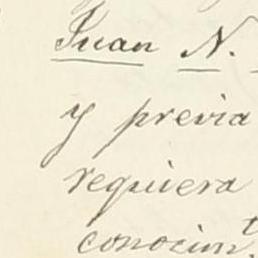 Juan N.
y previa
requiera
conocim.t